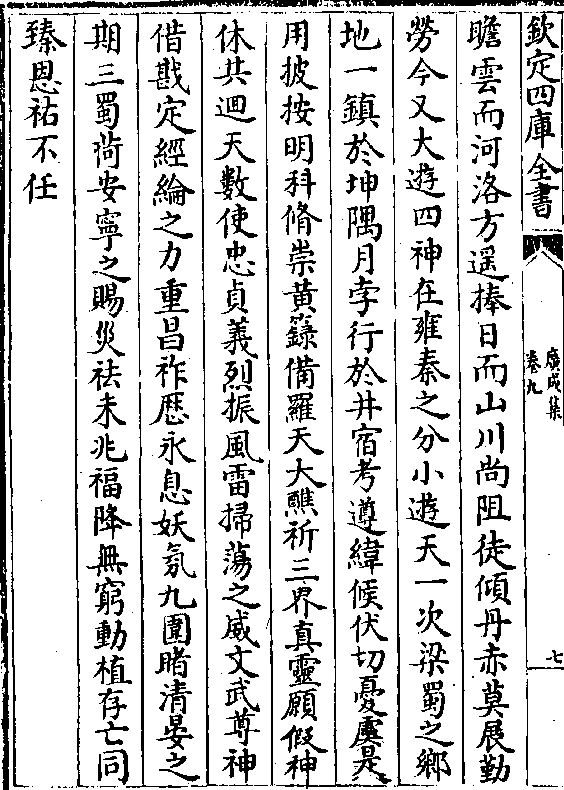 欽定四庫全書
廣成集
卷九
七
瞻雲而河洛方遥捧日而山川尚阻徒傾丹赤莫展勤
勞今又大遊四神在雍秦之分小遊天一次梁蜀之鄉
地一鎮於坤隅月孛行於井宿考遵緯候伏切憂虞是
用披按明科脩崇黄籙備羅天大醮祈三界真靈願假神
休共迴天數使忠貞義烈振風雷掃蕩之威文武尊神
借戡定經綸之力重昌祚歴永息妖氛九圍睹清晏之
期三蜀荷安寧之賜災祛未兆福降無窮動植存亡同
臻恩祐不任